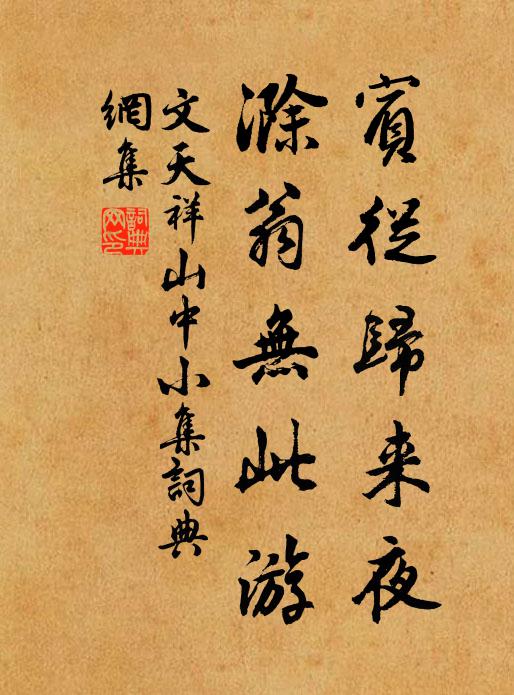 賓從歸来夜
滁翁無此游
文天祥山中小集詞典
網集
詞典
网印